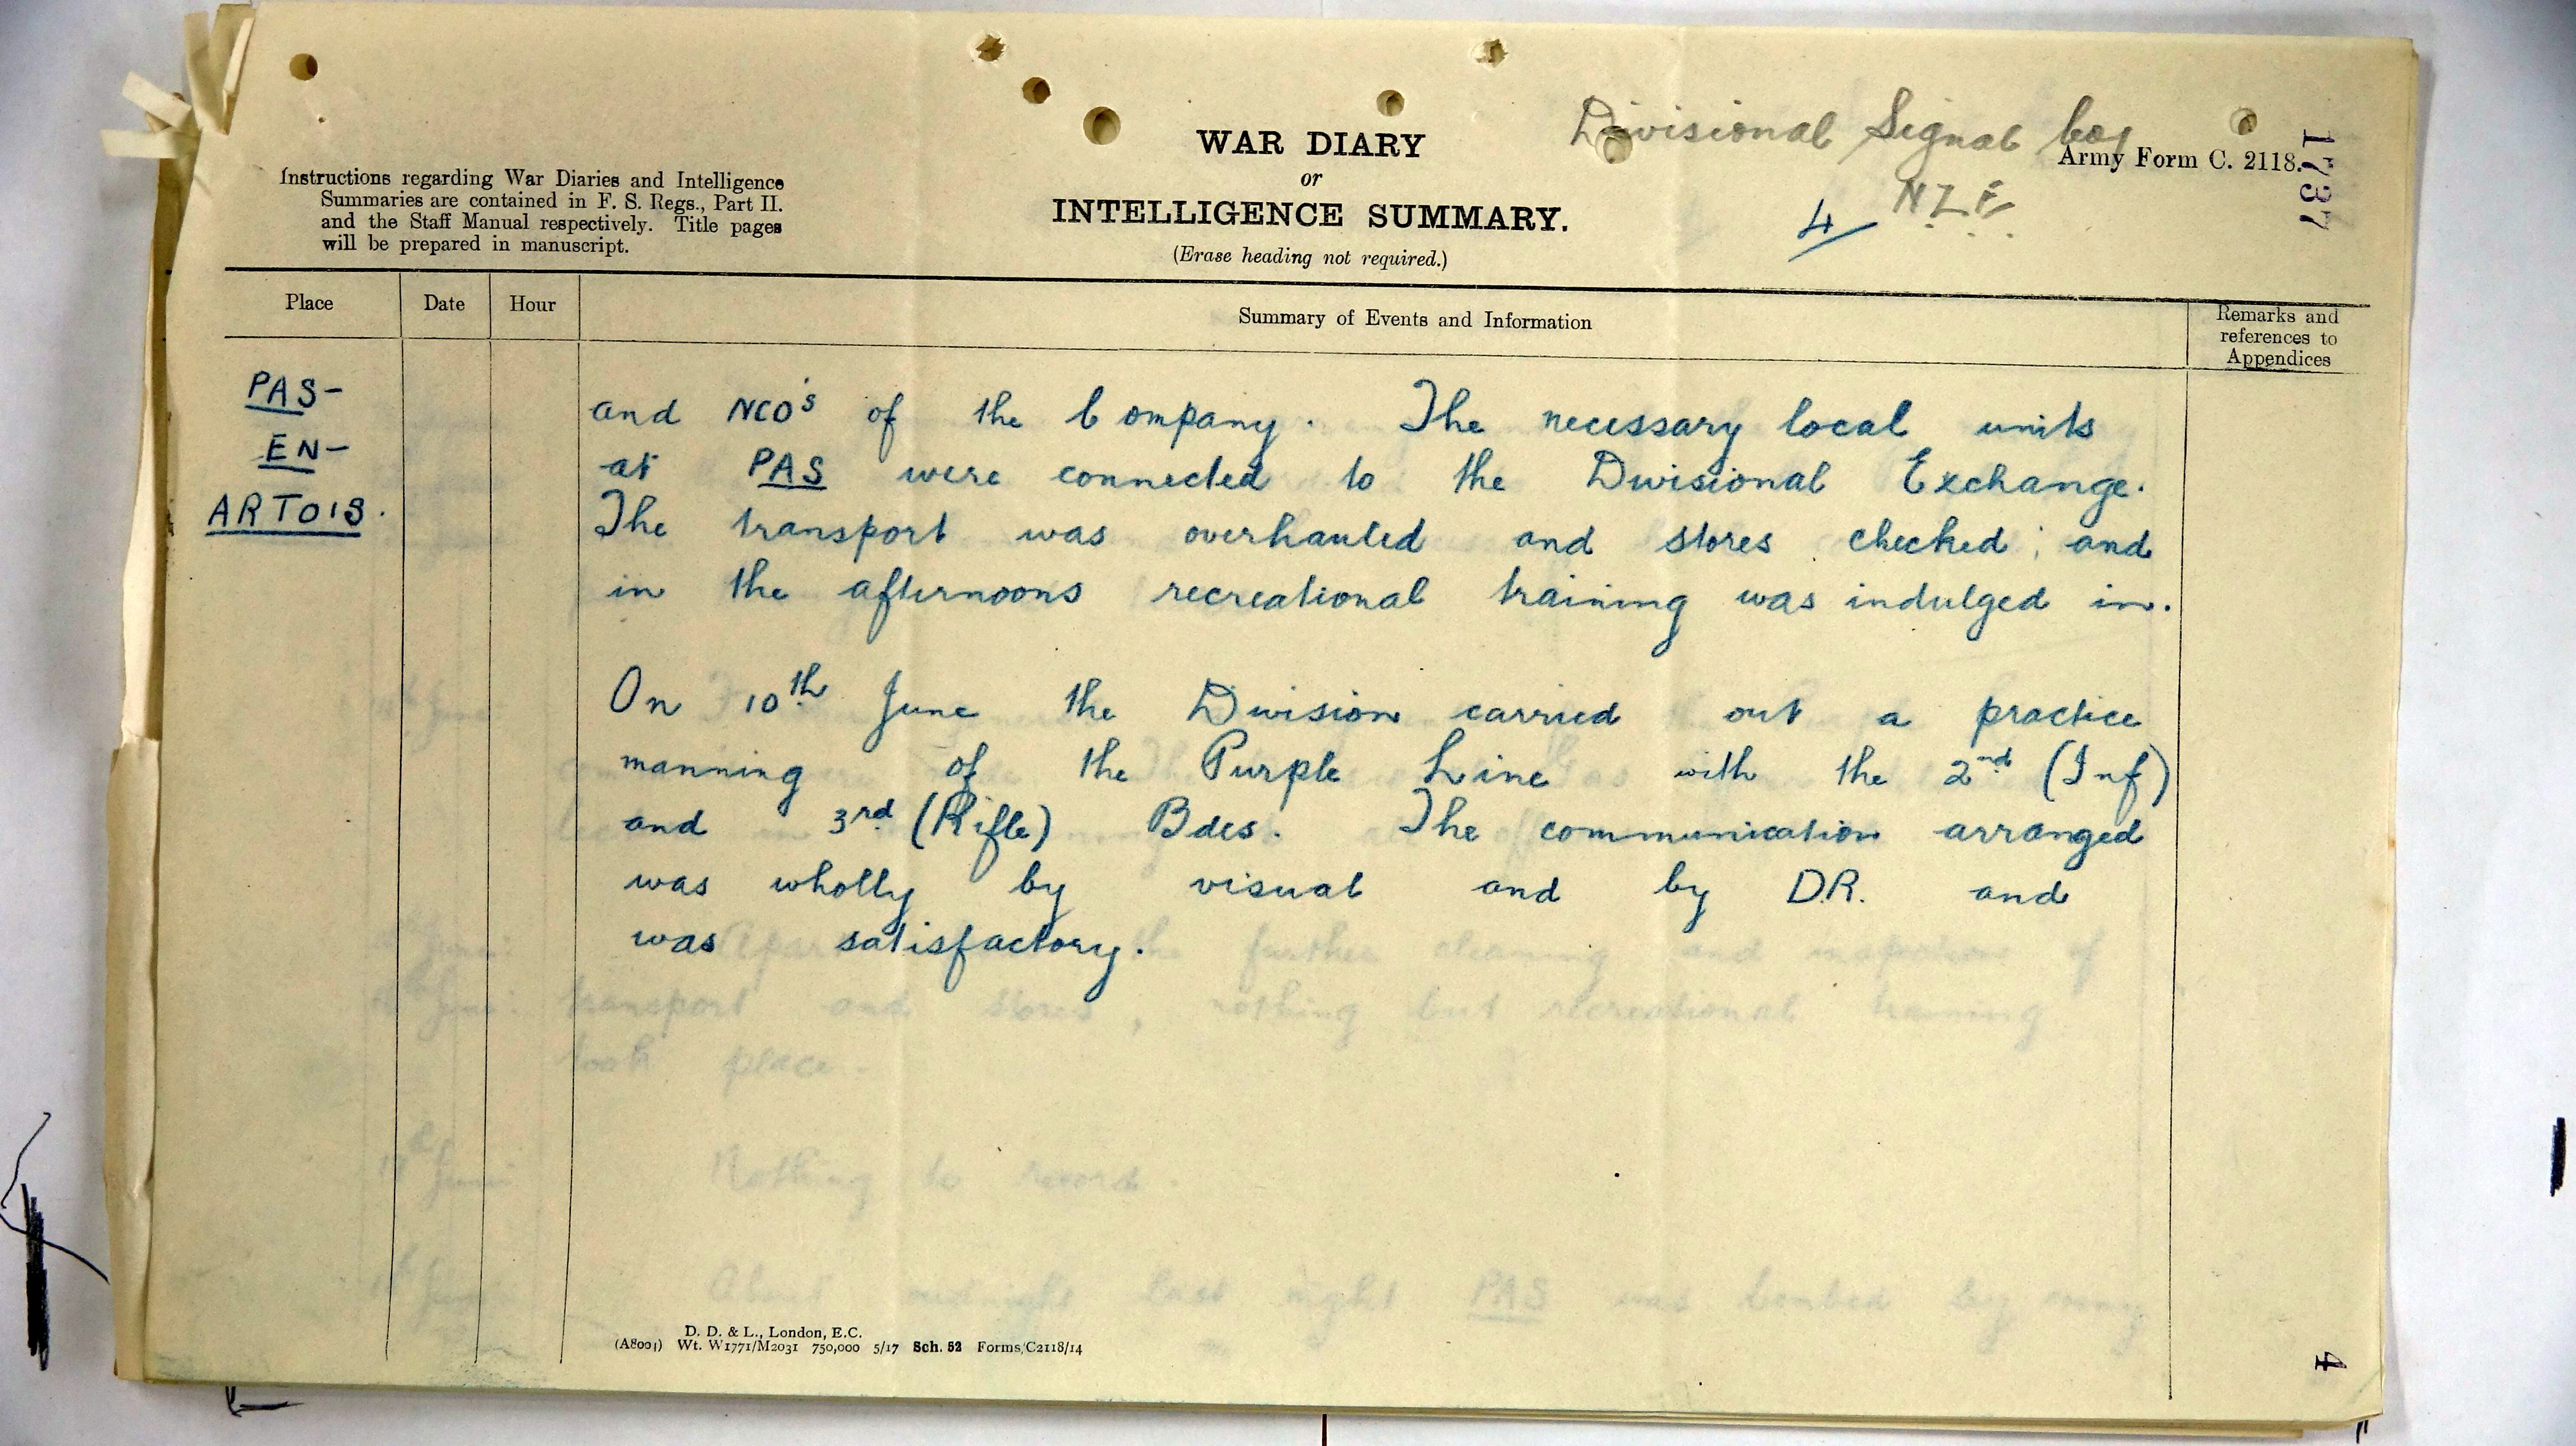 Divisional Signal Coy
Army Form C. 2118.
N.Z.E.
4
1737
WAR DIARY
or
INTELLIGENCE SUMMARY.
(Erase heading not required.)
Instructions regarding War Diaries and Intelligence
Summaries are contained in F. S. Regs., Part II.
and the Staff Manual respectively. Title pages
will be prepared in manuscript.
Place
Date
Hour
Summary of Events and Information
Remarks and
references to
Appendices
PAS-
EN-
ARTOIS.
and NCO's of the Company. The necessary local units
at PAS were connected to the Divisional Exchange.
The transport was overhauled and stores checked; and
in the afternoons recreational training was indulged in.
On 10th June the Division carried out a practice
manning of the Purple Line with the 2nd (Inf)
and 3rd (Rifle) Bdes. The communication arranged
was wholly by visual and by D.R. and
was satisfactory.
the further cleaning and inspection of
transport and stores, nothing but recreational training
took place.
June
Nothing to record.
About midnight last night PAS was bombed by enemy
D. D. & L., London, E.C.
(A8001) Wt. W1771/M2031 750,000 5/17 Sch. 52 Forms/C2118/14
4